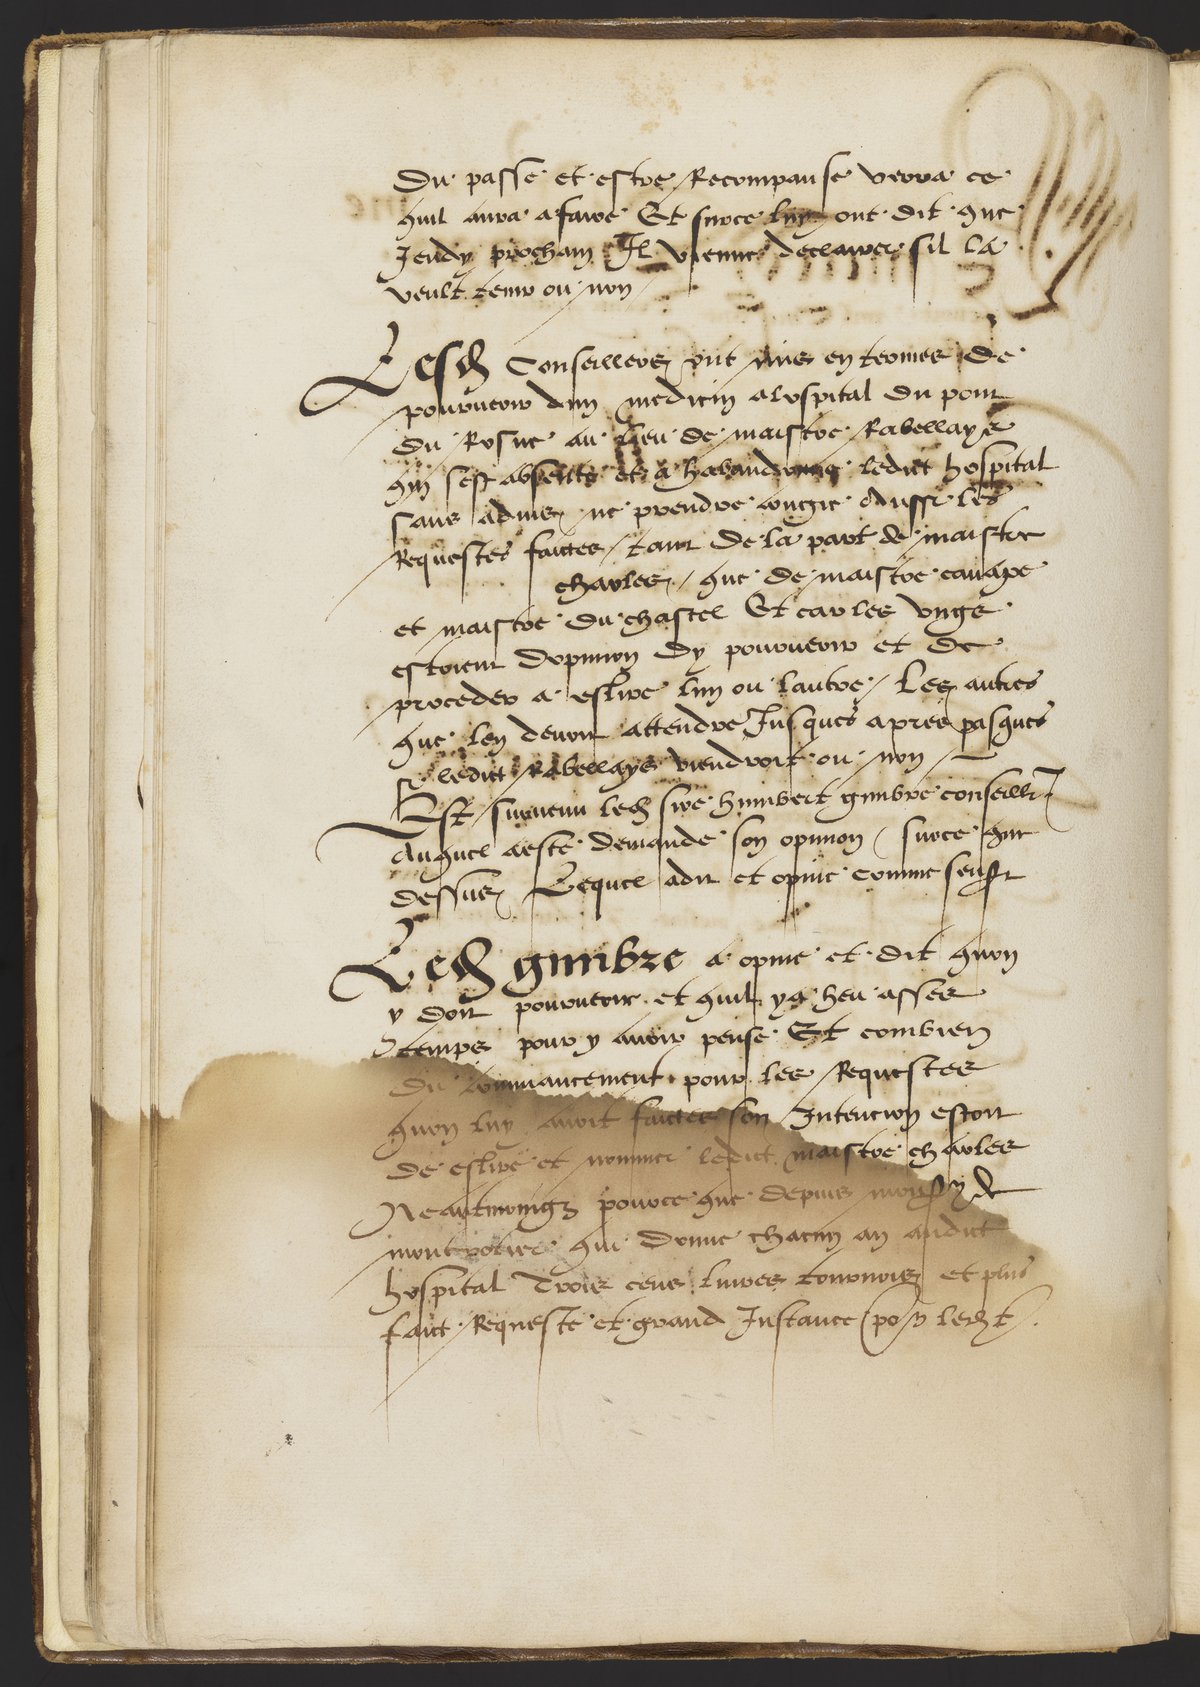 du passe et estre Recompanse verra ce
quil aura afaire Et surce luy ont dit que
Jeudy prochain Il vienne declairer sil la
veult tenir ou non
Lesd Conseillers ont mis en termes de
pourueoir dun medicin alospital du pont
du Rosne au lieu de maistre Rabellays
qui sest absente et a habandonne ledict hospital
sans aduis ne prendre congie Aussi les
Requestes faictes / tant de la part de maistre
charles / que de maistre canape
et maistre du chastel Et car les vngs
estoient dopinion dy pourueoir et de
proceder a eslire lun ou lautre / Les autres
que len deuoit attendre Jusques apres pasques
si ledict Rabellays viendroit ou non
Est suruenu led sire humbert gimbre conseillr
Auquel aeste demande son opinion / surce que
dessus Lequel adit et opine comme sensuit
Led gimbre a opine et dit quon
y doit pourueoir et quil ya heu asses
temps pour y auoir pense Et combien
du commancement pour les Requestes
quon luy auoit faictes son Intencion estoit
de eslire et nommer ledict maistre charles
Neantmoings pource que depuis monsr de
montrotier qui donne chacun an audict
hospital Trois cens liures tournois et plus
faict Requeste et grand Instance po